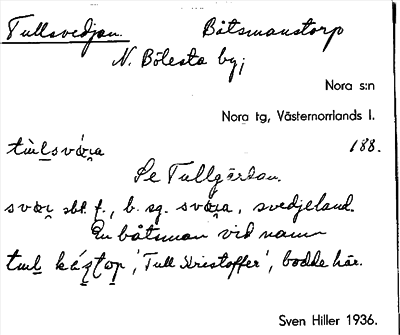 Tullsvedjan. Båtsmanstorp
N. Bölesta by;
Nora s:n
Nora tg, Västernorrlands l.
188.
Se Tullgärdan.
sbt. f., b. sg. , svedjeland.
En båtsman vid namn
'Tull Kristoffer', bodde här.
Sven Hiller 1936.